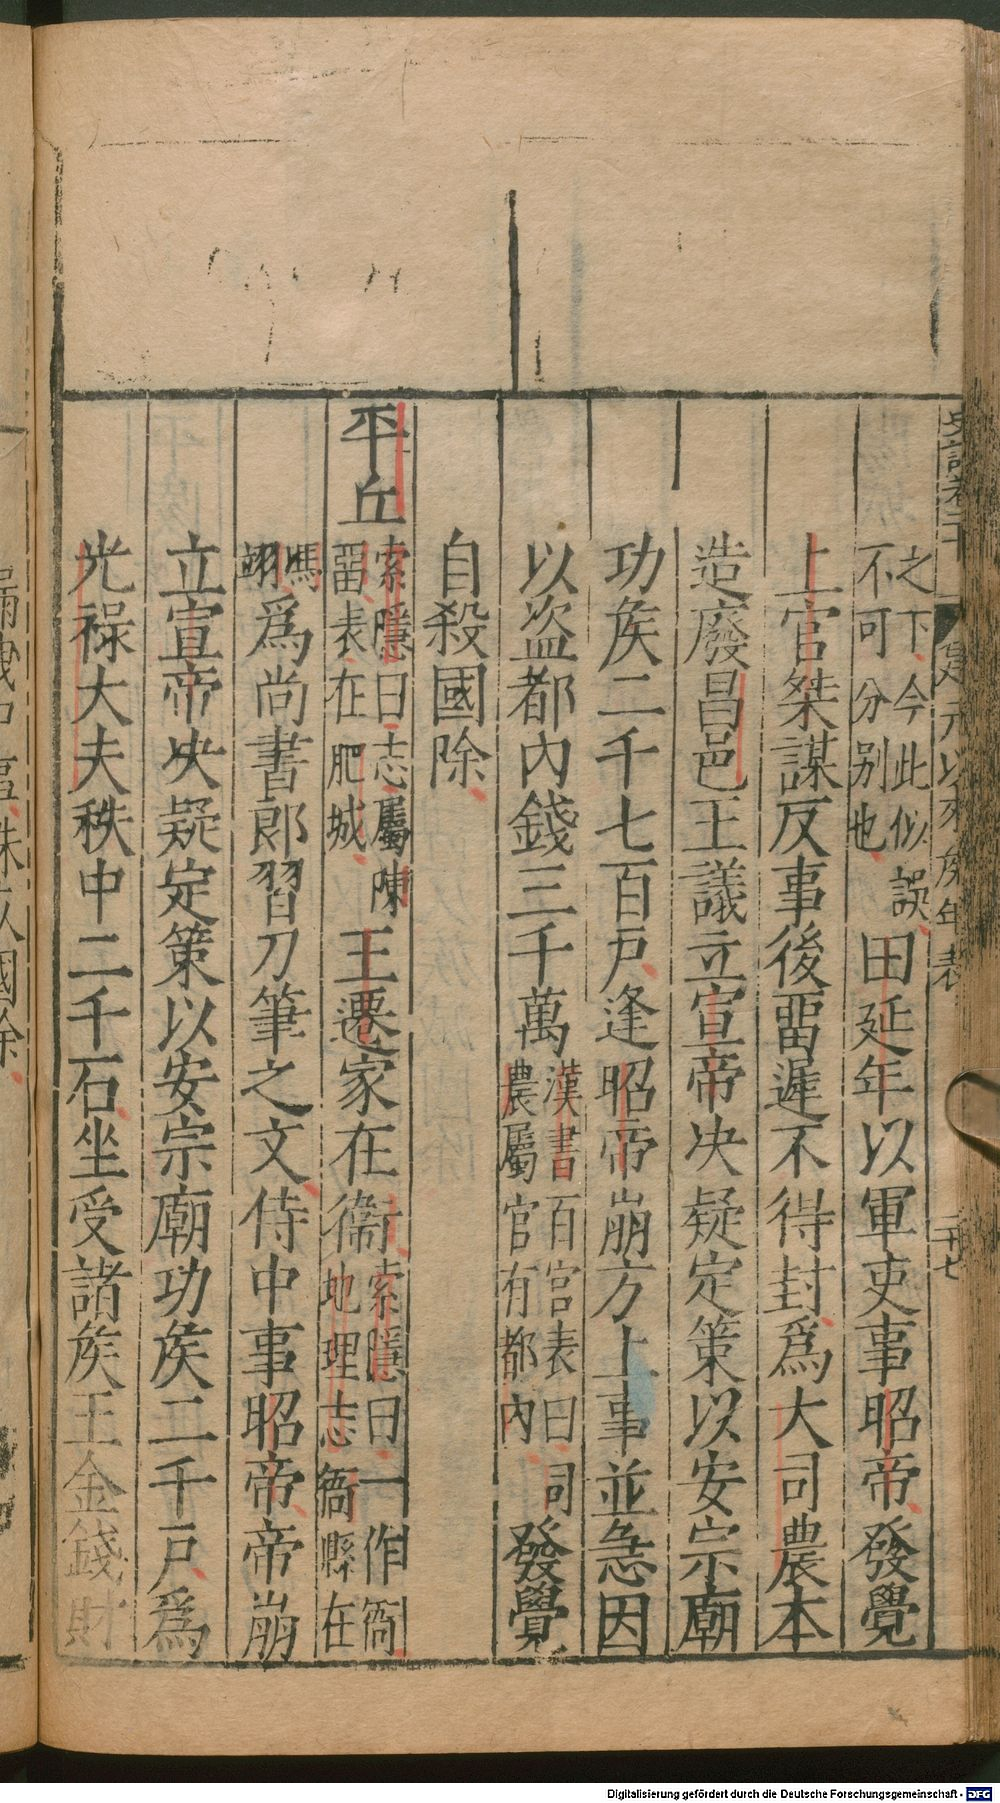 史記卷二十 建元以來矦年表 二十七
之下今此似誤
不可分別也
田延年以軍吏事昭帝發覺
上官桀謀反事後畱遲不得封爲大司農本
造廢昌邑王議立宣帝决疑定策以安宗廟
功矦二千七百戶逢昭帝崩方上事並急因
以盜都內錢三千萬
漢書百官表曰司
農屬官有都內
發覺
自殺國除
平丘
索隱曰志屬陳
畱表在肥城
王遷家在衞
索隱曰一作衙
地理志衙縣在
馮
翊
爲尚書郎習刀筆之文侍中事昭帝帝崩
立宣帝决疑定策以安宗廟功矦二千戶爲
光祿大夫秩中二千石坐受諸矦王金錢財
國除
Digitalisierung gefördert durch die Deutsche Forschungsgemeinschaft - DFG